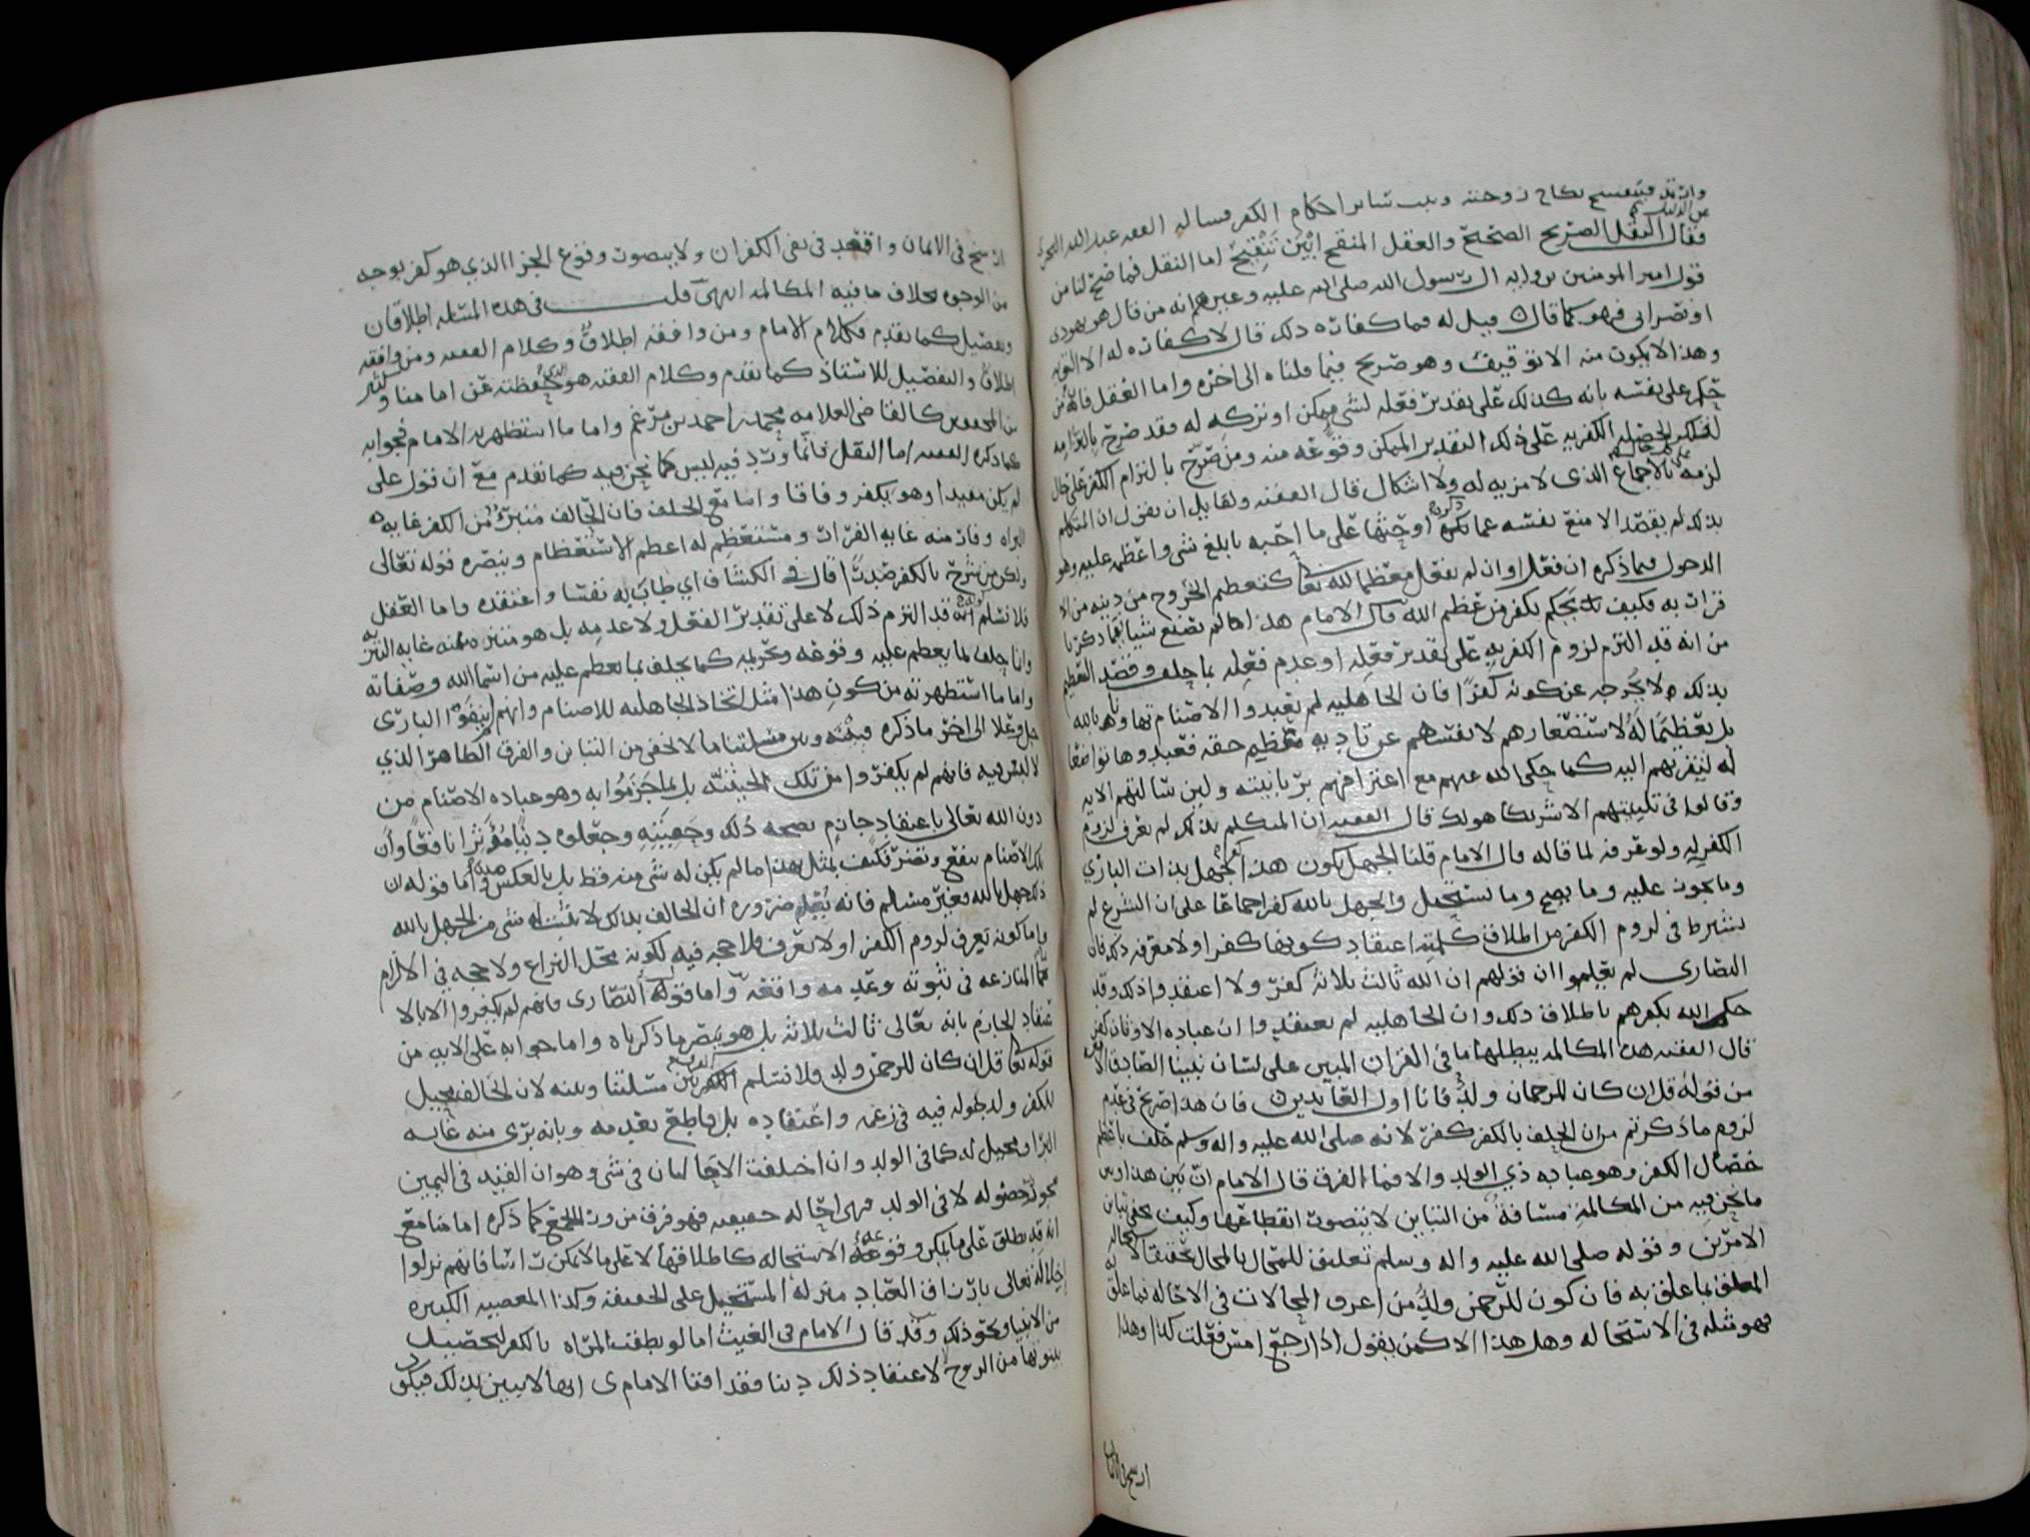 وارتد فينفسخ نكاح زوجته ويثبت سائر احكام الكفر فساله الفقيه عبد الله
عن الدليل
فقال النقل الصريح الصحيح والعقل المنقح ابين تنقيح اما النقل فما صح لنا من
قول امير المومنين يرويه الى رسول الله صلى الله عليه وعليهم انه من قال هو يهودى
او نصرانى فهو كما قال قيل له فما كفارة ذلك قال لا كفارة له الا التوبة
وهذا لا يكون منه الا توقيف وهو صريح فيما قلناه الى اخره واما العقل فانه من
حكم على نفسه بانه كذلك على تقدير فعله لشى ممكن او تركه له فقد صرح بالتزامه
الكفر به على ذلك التقدير الممكن وقوعه منه ومن صرح بالتزام الكفر على حال
لزمه بالاجماع الذى لا مزيه له ولا اشكال قال الفقيه ولقايل ان يقول ان المتكلم
بذلك لم يقصد الا منع نفسه عما ذكره او حثها على ما احبه بابلغ شى واعظمه عليه وهو
الدخول فيما ذكره ان فعل او ان لم يفعل معظما لله تعالى كتعظيم الخروج من دينه من الا
قرار به فكيف نحكم بكفر من عظم الله قال الامام هذا ما لم تصنع شيا بما ذكرنا
من انه قد التزم لزوم الكفر به على تقدير فعله او عدم فعله بما حلف وقصد التعظيم
بذلك لا يخرجه عن كونه كفرًا فان الجاهلية لم يعبدوا الاصنام تهاونا بالله
بل تعظيمًا له لاستصغارهم لانفسهم عن تاديه تعظيم حقه فعبدوها تواضعا
له لتقربهم اليه كما حكى الله عنهم مع اعترافهم بربانيته ولين سالتهم الايه
وقالوا فى تلبيتهم الا شريكا هو لك قال الفقيه ان المتكلم بذلك لم يعرف لزوم
الكفر له ولو عرفه لما قاله قال الامام قلنا الجهل بكون هذا كفر كجهل بذات البارى
وما يجوز عليه وما يصح وما يستحيل والجهل بالله كفر اجماعا على ان الشرع لم
يشترط فى لزوم الكفر من اطلاق كلمته اعتقاد كونها كفرا ولا معرفه ذلك فان
النصارى لم يعلموا ان قولهم ان الله ثالث ثلاثة كفر ولا اعتقدوا ذلك وقد
حكم الله بكفرهم باطلاق ذلك وان الجاهلية لم يعتقدوا ان عباده الاوثان كفر
قال الفقيه هذه المكالمه يبطلها ما فى القران المبين على لسان نبينا الصادق
من قوله قل ان كان للرحمان ولدٌ فانا اول العابدين فان هذا صريح فى عدم
لزوم ما ذكرتم من ان الحلف بالكفر كفر لانه صلى الله عليه واله وسلم حلف باعظم
خصال الكفر وهو عباده ذي الولد والا فما الفرق قال الامام ان بين هذا وبين
ما نحن فيه من المكالمة مسافةً من التباين لا يتصور انقطاعها وكيف يخفى تباين
الامرين وقوله صلى الله عليه واله وسلم تعليق للمحال بالمحال تحقيقا لاستحاله
المعلق بما علق به فان كون للرحمن ولدٌ من اعرف المحالات فى الاحاله فما علق به
فهو مثله فى الاستحاله وهل هذا الا كمن يقول اذا رجع امس فعلت كذا وهذا
ارسخ فى الايمان
ارسخ فى الايمان واقعد فى نفى الكفران ولا يتصور وقوع الجزا الذي هو كفر بوجه
من الوجوه بخلاف ما فيه المكالمه انتهى قلت فى هذه المسئله اطلاقان
وتفصيل كما تقدم فكلام الامام ومن وافقه اطلاقٌ وكلام الفقيه ومن وافقه
اطلاق والتفصيل للاستاذ كما تقدم وكلام الفقيه هو الذي نحفظه عن امامنا وكثير
من المحققين كالقاضى العلامه محمد بن احمد بن مرغم واما ما استظهر به الامام فجوابه
كما ذكره الفقيه اما النقل فانما ورد فيه ليس مما نحن فيه كما تقدم مع ان قول على
لم يكن مقيدا وهو يكفر وفاقا واما مع الحلف فان الحالف متبرئ من الكفر غايه
البراه وفار منه غايه الفرار ومستعظم له اعظم الاستعظام وينصره قوله تعالى
ولكن من شرح بالكفر صدرًا قال فى الكشاف اي طاب به نفسًا واعتقده واما العقل
فلا نسلم انه قد التزم ذلك لا على تقدير الفعل ولا عدمه بل هو متنزه عنه غايه التنزه
وانما حلف بما يعظم عليه وقوعه وتحريمه كما يحلف بما يعظم عليه من اسما الله وصفاته
واما ما استظهر به من كون هذا مثل اتخاذ الجاهليه للاصنام وانهم لم ينفوا البارى
جل وعلا الى اخر ما ذكره فبينه وبين مسئلتنا ما لا يخفى من التباين والفرق الظاهر الذي
لا لبس فيه فانهم لم يكفروا من تلك الحيثيه بل لما جزموا به وهو عباده الاصنام من
دون الله تعالى باعتقاد جازم بصحه ذلك وحقيته وجعلوه دينًا مؤثرا نافعًا وان
تلك الاصنام تنفع وتضر فكيف يمثل بهذا ما لم يكن له شى منه قط بل بالعكس واما قوله ان
ذلك جهل بالله فغير مسلم فانه يعلم ضروره ان الحالف بذلك لا يثبت له شى من الجهل بالله
واما كونه يعرف لزوم الكفر او لا يعرف فلا حجه فيه لكونه محل النزاع ولا حجه فى الالزام
مع المنازعه فى ثبوته وعدمه وافقه واما قوله النصارى فانهم لم يكفروا الا بالا
عتقاد الجازم بانه تعالى ثالث ثلاثه بل هو ينصر ما ذكرناه واما جوابه على الايه من
قوله تعالى قل ان كان للرحمن ولد فلا نسلم الفرق بين مسئلتنا وبينه لان الحالف محيل
للكفر ولدخوله فيه فى زعمه واعتقاده بل قاطع بعدمه وبانه برى منه غايه
البراءه ومحيل له كما فى الولد وان اختلفت الاحالتان فى شى وهو ان القيد فى اليمين
يجوز حصوله لا فى الولد فهى احاله حقيقيه فهو فرق من ورا الجمع كما ذكره امامنا مع
انه قد يطلق على ما يمكن وقوعه الاستحاله كاطلاقها لا على ما لا يمكن راسا فانهم نزلوا
اخلاله تعالى بارزاق العباد منزله المستحيل على الحقيقه وكذا المعصيه الكبيره
من الانبيا ونحو ذلك وقد قال الامام فى الغيث اما لو نطقت المراه بالكفر لتحصيل
بينونتها من الزوج لا عتقاد ذلك دينا فقد افتا الامام ى انها لا تبين بذلك فيكون